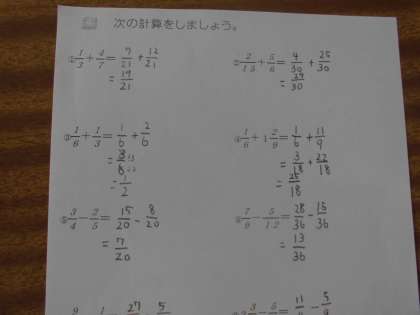 次の計算をしましょう。
① 1/3 + 4/7 = 7/21 + 12/21
= 19/21
② 2/15 + 5/6 = 4/30 + 25/30
= 29/30
③ 1/6 + 1/3 = 1/6 + 2/6
= 3/6 ÷3 ÷3
= 1/2
④ 1/6 + 1 2/9 = 1/6 + 11/9
= 3/18 + 22/18
= 25/18
⑤ 3/4 - 2/5 = 15/20 - 8/20
= 7/20
⑥ 7/9 - 5/12 = 28/36 - 15/36
= 13/36